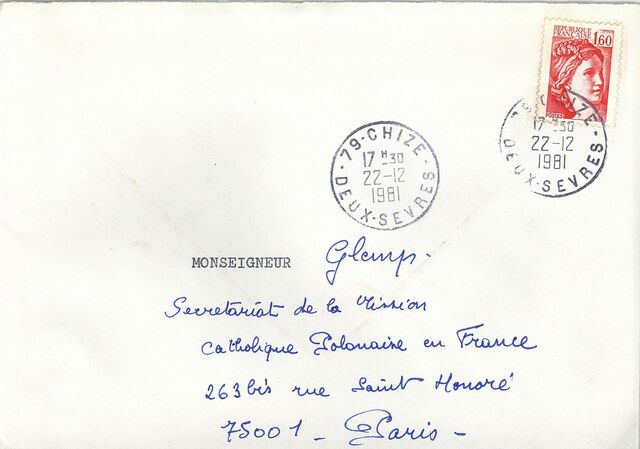 REPUBLIQUE FRANÇAISE 1,60
POSTES
79-CHIZE
17 H 30
22-12
1981
DEUX-SEVRES
CHIZE
17 H 30
22-12
1981
DEUX-SEVRES
MONSEIGNEUR Glemp.
Secretariat de la Mission
Catholique Polonaise en France
263 bis rue Saint Honoré
75001 - Paris -